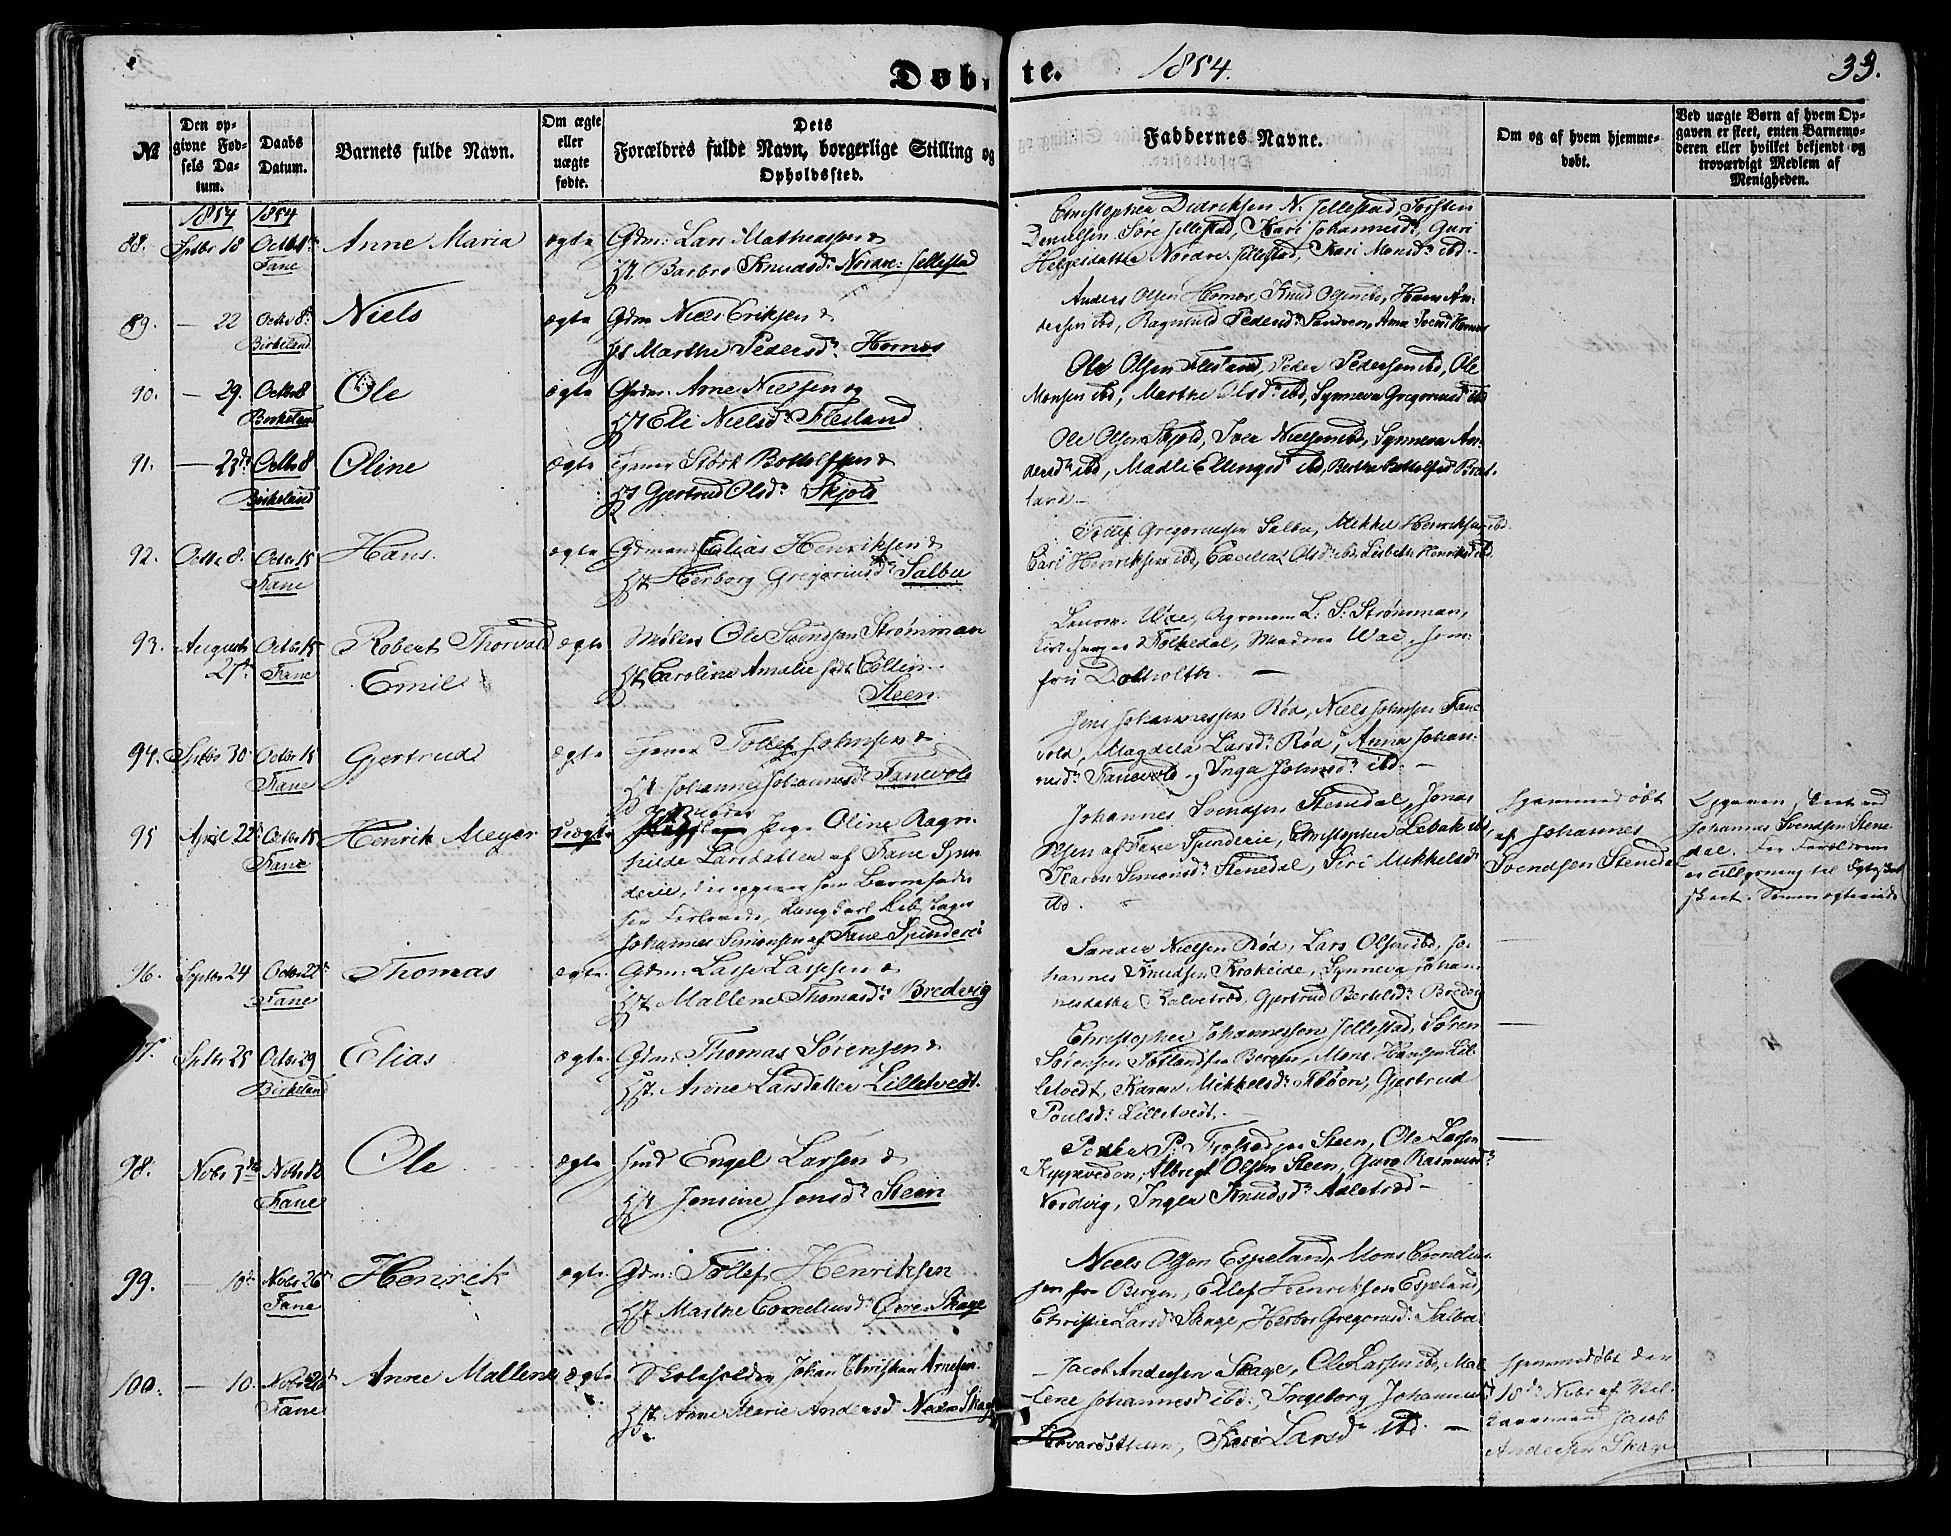 Døbte. 1854. 39.
№
Den opgivne Fødsels Datum.
Daabs Datum.
Barnets fulde Navn.
Om ægte eller uægte fødte.
Dets Forældres fulde Navn, borgerlige Stilling og Opholdssted.
Faddernes Navne.
Om og af hvem hjemmedøbt.
Ved uægte Børn af hvem Opgaven er skeet, enten Barnemoderen eller hvilket bekjendt og troværdigt Medlem af Menigheden.
1854 1854
88. Septbr 18 Octb 1ste Fane
Anne Maria
ægte
Gdm: Lars Mathiassen &
Hst. Barbro Knudsd: Nordre: Jellestad
Christopher Didriksen N: Jellestad, Torsten
Danielsen Søre Jellestad, Kari Johannesd:, Guri
Helgesdatter Nordre Jellestad, Kari Monsd: ibd.
89. — 22 Octbr 8de Birkeland
Niels
ægte
Gdm Niels Eriksen &
Hst Marthe Pedersd: Hornes
Anders Olsen Hornes, Knud Olsen ibd, Hans An-
dersen ibd, Ragnhild Pedersd: Sandven, Anna Iversd Hornes
90. — 29. Octbr 8 Birkeland
Ole
ægte
Gdm: Arne Nielsen og
Hst Eli Nielsd: Flesland
Ole Olsen Flesland, Peder Pedersen ibd, Ole
Monsen ibd, Marthe Olsd: ibd, Synneva Gregoriusd ibd
91. — 23de Octbr 8 Birkeland
Oline
ægte
Størk Bottolfsen &
Hst Gjertrud Olsd: Skjold
Ole Olsen Skjold, Iver Nielsen ibd, Synneva An-
dersd: ibd, Madli Ellingsd: ibd, Berthe Bottolfsd: Bred-
land —
92. Octbr 8. Octbr 15 Fane
Hans.
ægte
Gdmand Elias Henriksen &
Hst. Herborg Gregoriusd: Salbu
Tollef Gregoriussen Salbu, Mikkel Henriksen ibd
Carl Henriksen ibd, Olsd: ibd, Lisbeth Henriksd ibd.
93. August 21de Octbr 15 Fane
Robert Thorvald
Emil
ægte
Møller Ole Svendsen Strømman
Hst. Caroline Amalie født Collin
Steen.
Wae, Agronom L. S. Strømman,
Kirkesanger Folkedal, Madme Wae, Jom-
fru Dobholth. —
94. Septbr 30 Octbr 15 Fane
Gjertrud
ægte
Tollef Johnsen &
Hst. Johanne Johannesd: Fanevold
Jens Johannessen Rød, Niels Johnsen Fane
vold, Magdela Larsd: Rød, Anna Johan-
nesd: Fanevold, Inga Johnsd: ibd. —
95 April 22de Octbr 15 Fane
Henrik Meyer
uægte
Pige Oline Ragn-
hilde Larsdatter af Fane Spin-
derie, der opgiver som Barnefader
sin Forlovede, Ungkarl
Johannes Simonsen af Fane Spinderi
Johannes Svendsen Stenedal, Jonas
Olsen af Fane Spinderie, Christopher Lebak ibd,
Karen Simonsd: Stenedal, Siri Mikkelsd:
ibd.
Hjemmedøbt
af Johannes
Svendsen Stenedal
Opgaven skeet ved
Johannes Svendsen Stene
dal.
96. Septbr 24 Octbr 22de Fane
Thomas
ægte
Gdm: Lasse Lassesen &
Hst. Mallene Thomasd: Bredvig
Sander Nielsen Rød, Lars Olsen ibd, Jo-
hannes Knudsen Krokeide, Synneva Johan-
nesdatter Kalvetræd, Gjertrud Bertelsd: Bredvig
97. Septbr 25 Octbr 29 Birkeland
Elias
ægte
Gdm: Thomas Sørensen &
Hst. Anne Larsdatter Lilletvedt.
Christopher Johannessen Jellestad, Søren
Sørensen Totland fra Bergen, Mons Hansen Lil-
letvedt, Karen Mikkelsd: Fløen, Gjertrud
Poulsd: Lilletvedt. —
98. Novbr 3die Novbr 12 Fane
Ole
ægte
Engel Larsen &
Hst Jensine Jensd: Steen
Peder P: Steen, Ole Larsen
Albregt Olsen Steen, Guro Rasmusd:
Nordvig, Inger Knudsd: Adletræd —
99. — 10de Novbr 26de Fane
Henrik
ægte
Gdm: Tollef Henriksen
Hst. Marthe Corneliusd: Øvre Skage
Niels Olsen Espeland, Mons Cornelius-
sen fra Bergen, Ellef Henriksen Espeland,
Christie Larsd: Skage, Herbor Gregoriusd: Salbu
100. — 10. Novbr 26de Fane
Anne Mallene
ægte
Skoleholder Johan Christian Arnesen
Hst. Anne Marie Andersd: Nedre Skage
Jacob Andersen Skage, Ole Larsen ibd, Mal
lene Johannesd: ibd. Ingeborg Johannesd
Havardsthun, Kari Larsd: ibd. —
Hjemmedøbt den
18de Novbr af
Jacob
Andersen Skage